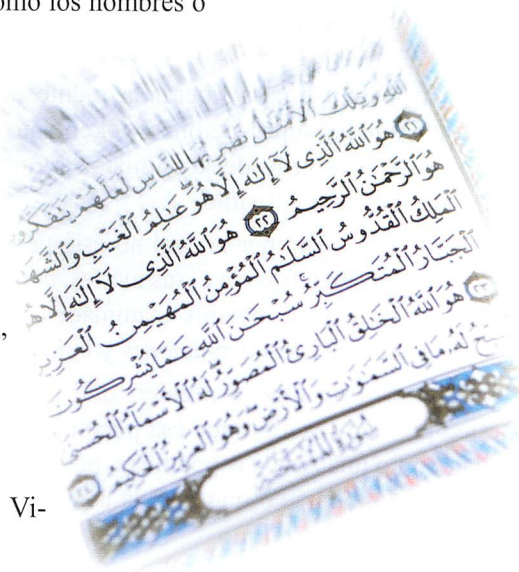 como los nombres o
الله وتلك الأمثل نضربها للناس لعلهم يتفكرون
۝٢١ هو الله الذى لا إله إلا هو علم الغيب والشهد
هو الرحمن الرحيم ۝٢٢ هو الله الذى لا إله إلا هو
الملك القدوس السلم المؤمن المهيمن العزيز
الجبار المتكبر سبحن الله عما يشركون
,
۝٢٣ هو الله الخلق البارئ المصور له الأسماء الحسنى
يسبح له ما فى السموت والأرض وهو العزيز الحكيم ۝٢٤
سورة الممتحنة
Vi-